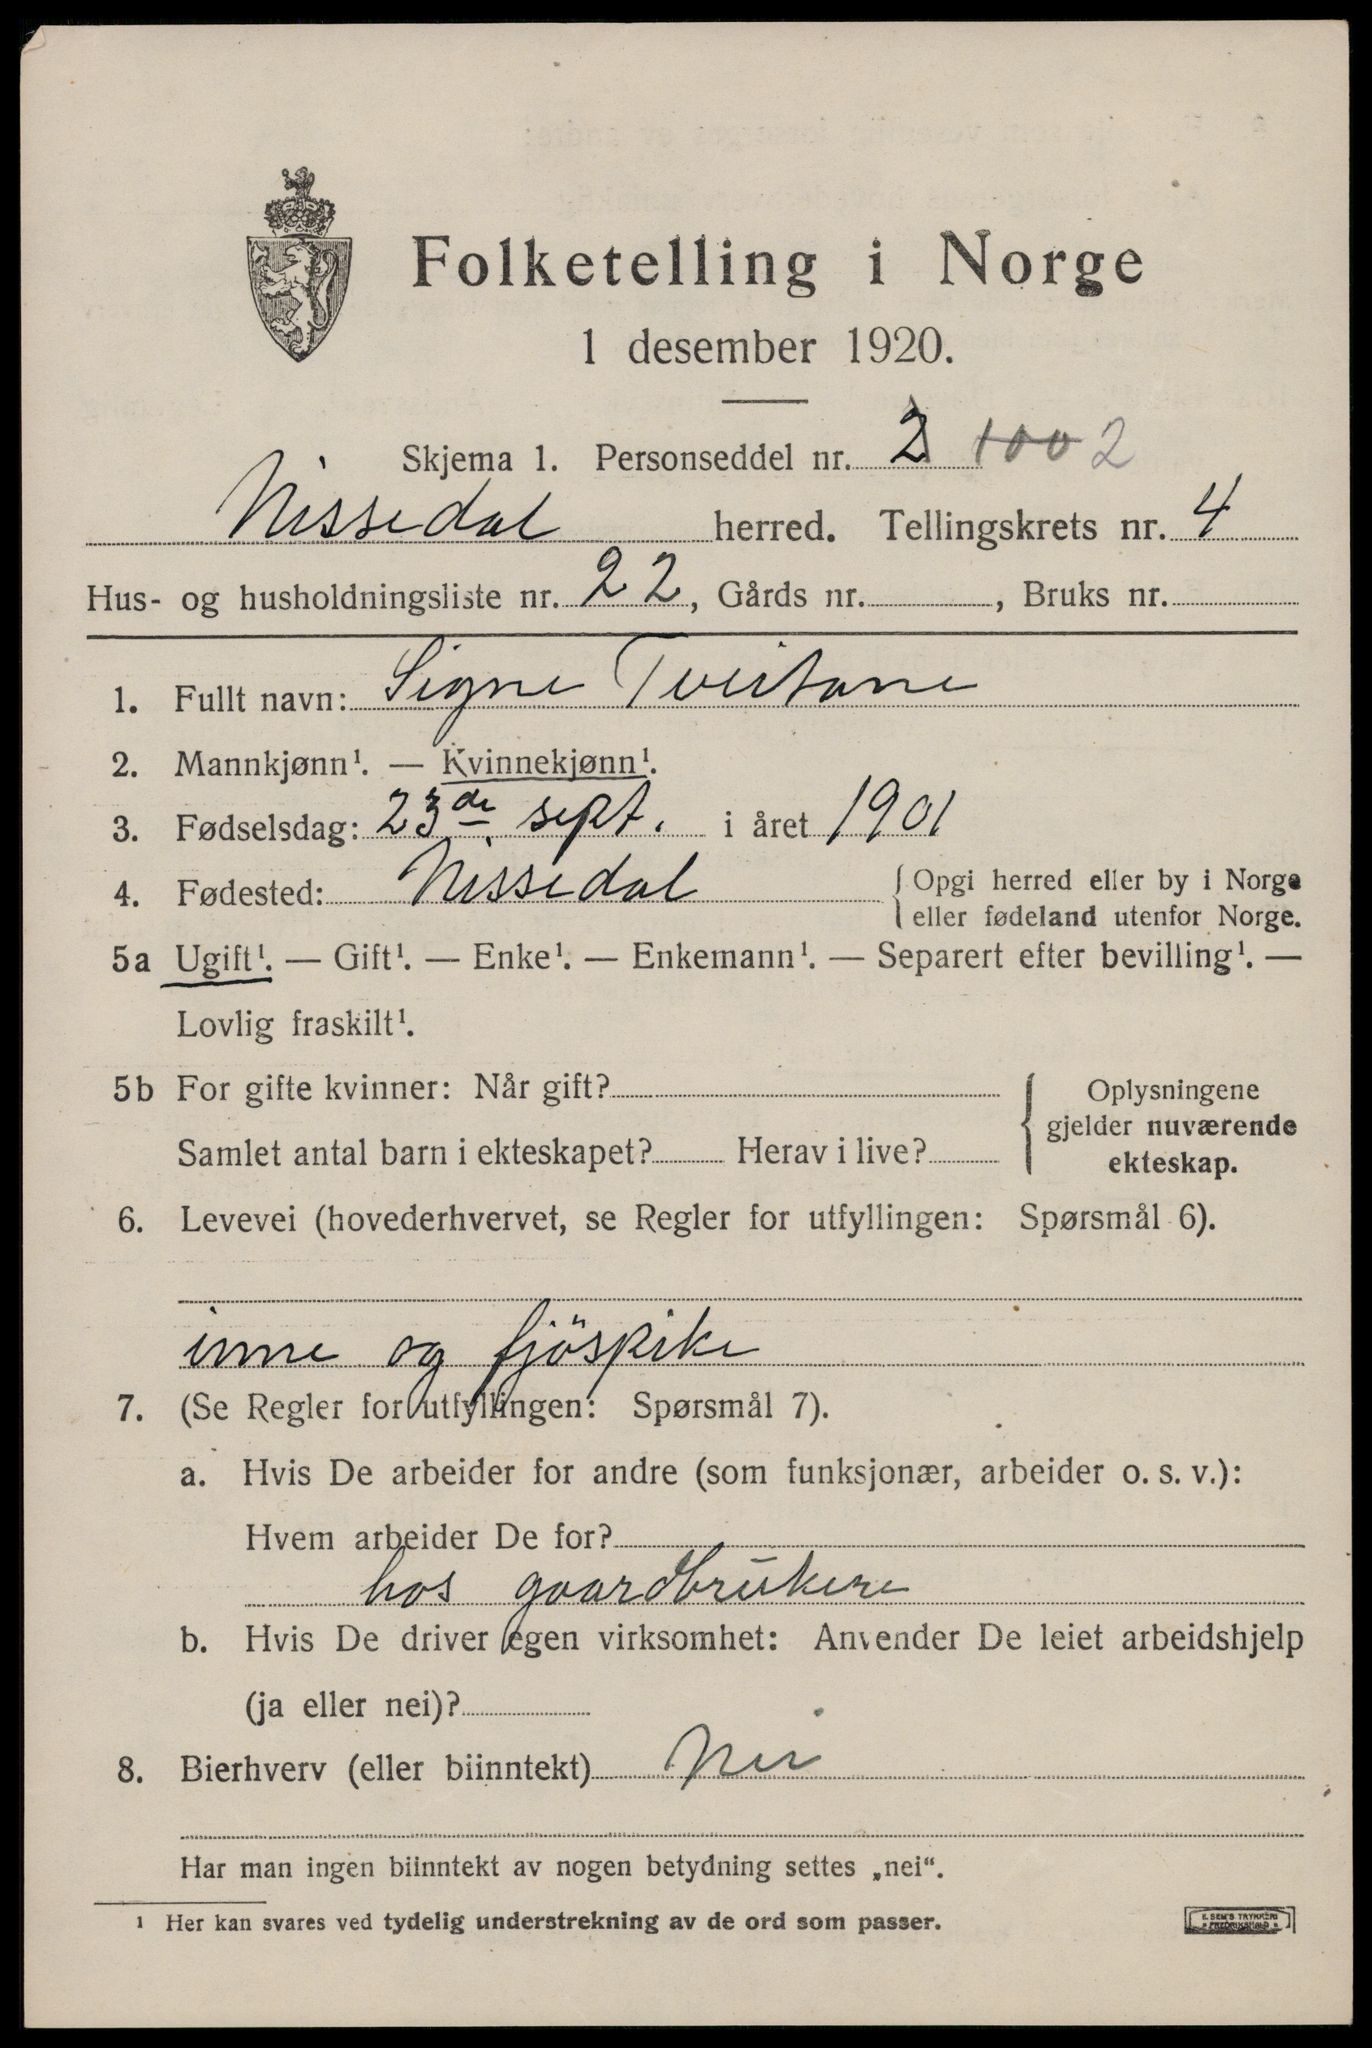 Folketelling i Norge
1 desember 1920.
Skjema 1. Personseddel nr. 2 1002
Nissedal herred. Tellingskrets nr. 4
Hus- og husholdningsliste nr. 22, Gårds nr. , Bruks nr.
1. Fullt navn: Signe Tveitane
2. Mannkjønn¹. — Kvinnekjønn¹.
3. Fødselsdag: 23de sept. i året 1901
4. Fødested: Nissedal { Opgi herred eller by i Norge
eller fødeland utenfor Norge.
5a Ugift¹. — Gift¹. — Enke¹. — Enkemann¹. — Separert efter bevilling¹. —
Lovlig fraskilt¹.
5b For gifte kvinner: Når gift?
Samlet antal barn i ekteskapet? Herav i live?
{ Oplysningene
gjelder nuværende
ekteskap.
6. Levevei (hovederhvervet, se Regler for utfyllingen: Spørsmål 6).
inne og fjöspike
7. (Se Regler for utfyllingen: Spørsmål 7).
a. Hvis De arbeider for andre (som funksjonær, arbeider o. s. v.):
Hvem arbeider De for?
hos gaardbrukere
b. Hvis De driver egen virksomhet: Anvender De leiet arbeidshjelp
(ja eller nei)?
8. Bierhverv (eller biinntekt) Nei
Har man ingen biinntekt av nogen betydning settes „nei“.
¹ Her kan svares ved tydelig understrekning av de ord som passer.
E. SEM'S TRYKKERI
FREDRIKSHALD